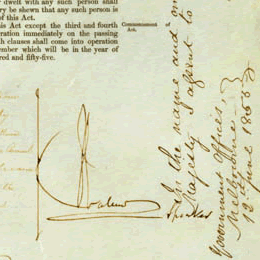 r dwelt with any such person shall
ry be shewn that any such person is
of this Act.
is Act except the third and fourth
eration immediately on the passing
h clauses shall come into operation
ember which will be in the year of
red and fifty-five.
Commencement of
Act.
In the name and on
Majesty I assent to
Government Offices,
Melbourne
12 June 1855